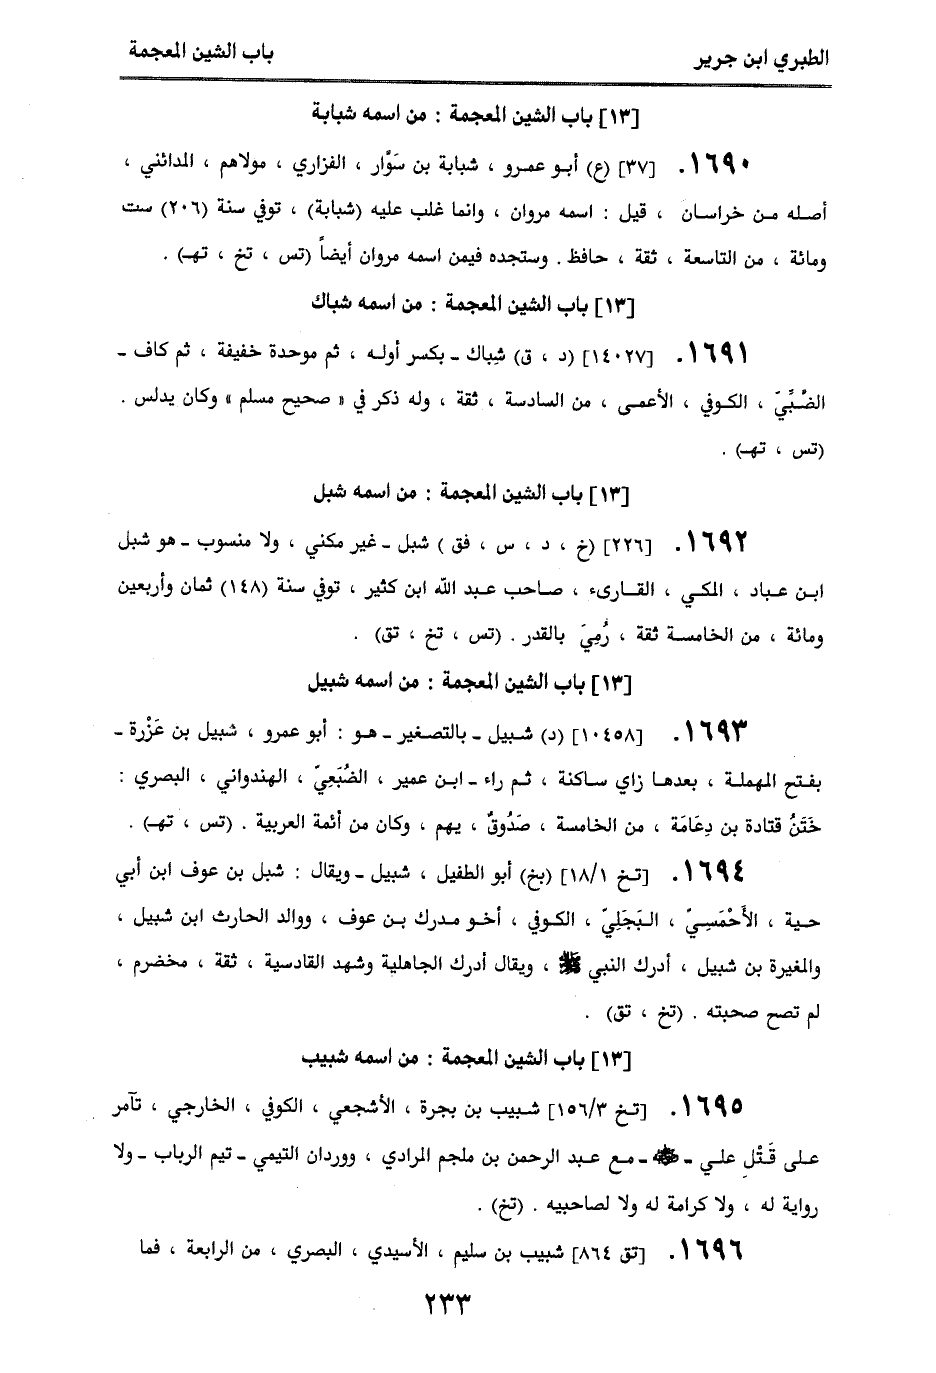 الطبري ابن جرير
باب الشين المعجمة
[١٣] باب الشين المعجمة : من اسمه شبابة
١٦٩٠. [٣٧] (ع) أبو عمرو ، شبابة بن سَوَّار ، الفزاري ، مولاهم ، المدائني ،
أصله من خراسان ، قيل : اسمه مروان ، وانما غلب عليه (شبابة) ، توفي سنة (٢٠٦) ست
ومائة ، من التاسعة ، ثقة ، حافظ . وستجده فيمن اسمه مروان أيضاً (تس ، تخ ، تهـ) .
[١٣] باب الشين المعجمة : من اسمه شباك
١٦٩١. [١٤٠٢٧] (د ، ق) شِباك ـ بكسر أوله ، ثم موحدة خفيفة ، ثم كاف ـ
الضَّبِّيّ ، الكوفي ، الأعمى ، من السادسة ، ثقة ، وله ذكر في « صحيح مسلم » وكان يدلس .
(تس ، تهـ) .
[١٣] باب الشين المعجمة : من اسمه شبل
١٦٩٢. [٢٢٦] (خ ، د ، س ، فق ) شبل ـ غير مكني ، ولا منسوب ـ هو شبل
ابن عباد ، المكي ، القارىء ، صاحب عبد الله ابن كثير ، توفي سنة (١٤٨) ثمان وأربعين
ومائة ، من الخامسة ثقة ، رُمِيَ بالقدر . (تس ، تخ ، تق) .
[١٣] باب الشين المعجمة : من اسمه شبيل
١٦٩٣. [١٠٤٥٨] (د) شبيل ـ بالتصغير ـ هو : أبو عمرو ، شبيل بن عَزْرة ـ
بفتح المهملة ، بعدها زاي ساكنة ، ثم راء ـ ابن عمير ، الضُبَعِيّ ، الهندواني ، البصري :
خَتَنُ قتادة بن دِعَامَة ، من الخامسة ، صَدُوقٌ ، يهم ، وكان من أئمة العربية . (تس ، تهـ) .
١٦٩٤. [تخ ١٨/١] (بخ) أبو الطفيل ، شبيل ـ ويقال : شبل بن عوف ابن أبي
حية ، الأَحْمَسِيّ ، البَجَلِيّ ، الكوفي ، أخو مدرك بن عوف ، ووالد الحارث ابن شبيل ،
والمغيرة بن شبيل ، أدرك النبي ﷺ ، ويقال أدرك الجاهلية وشهد القادسية ، ثقة ، مخضرم ،
لم تصح صحبته . (تخ ، تق) .
[١٣] باب الشين المعجمة : من اسمه شبيب
١٦٩٥. [تخ ١٥٦/٣] شبيب بن بجرة ، الأشجعي ، الكوفي ، الخارجي ، تآمر
على قَتْلِ علي ـ ـ مع عبد الرحمن بن ملجم المرادي ، ووردان التيمي ـ تيم الرباب ـ ولا
رواية له ، ولا كرامة له ولا لصاحبيه . (تخ) .
١٦٩٦. [تق ٨٦٤] شبيب بن سليم ، الأسيدي ، البصري ، من الرابعة ، فما
٢٣٣